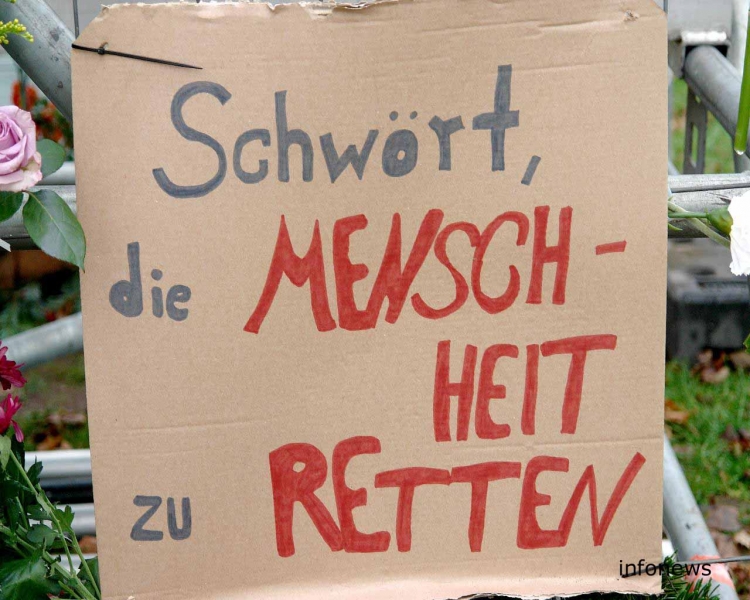 Schwört,
die MENSCH-
HEIT
zu RETTEN
infonews